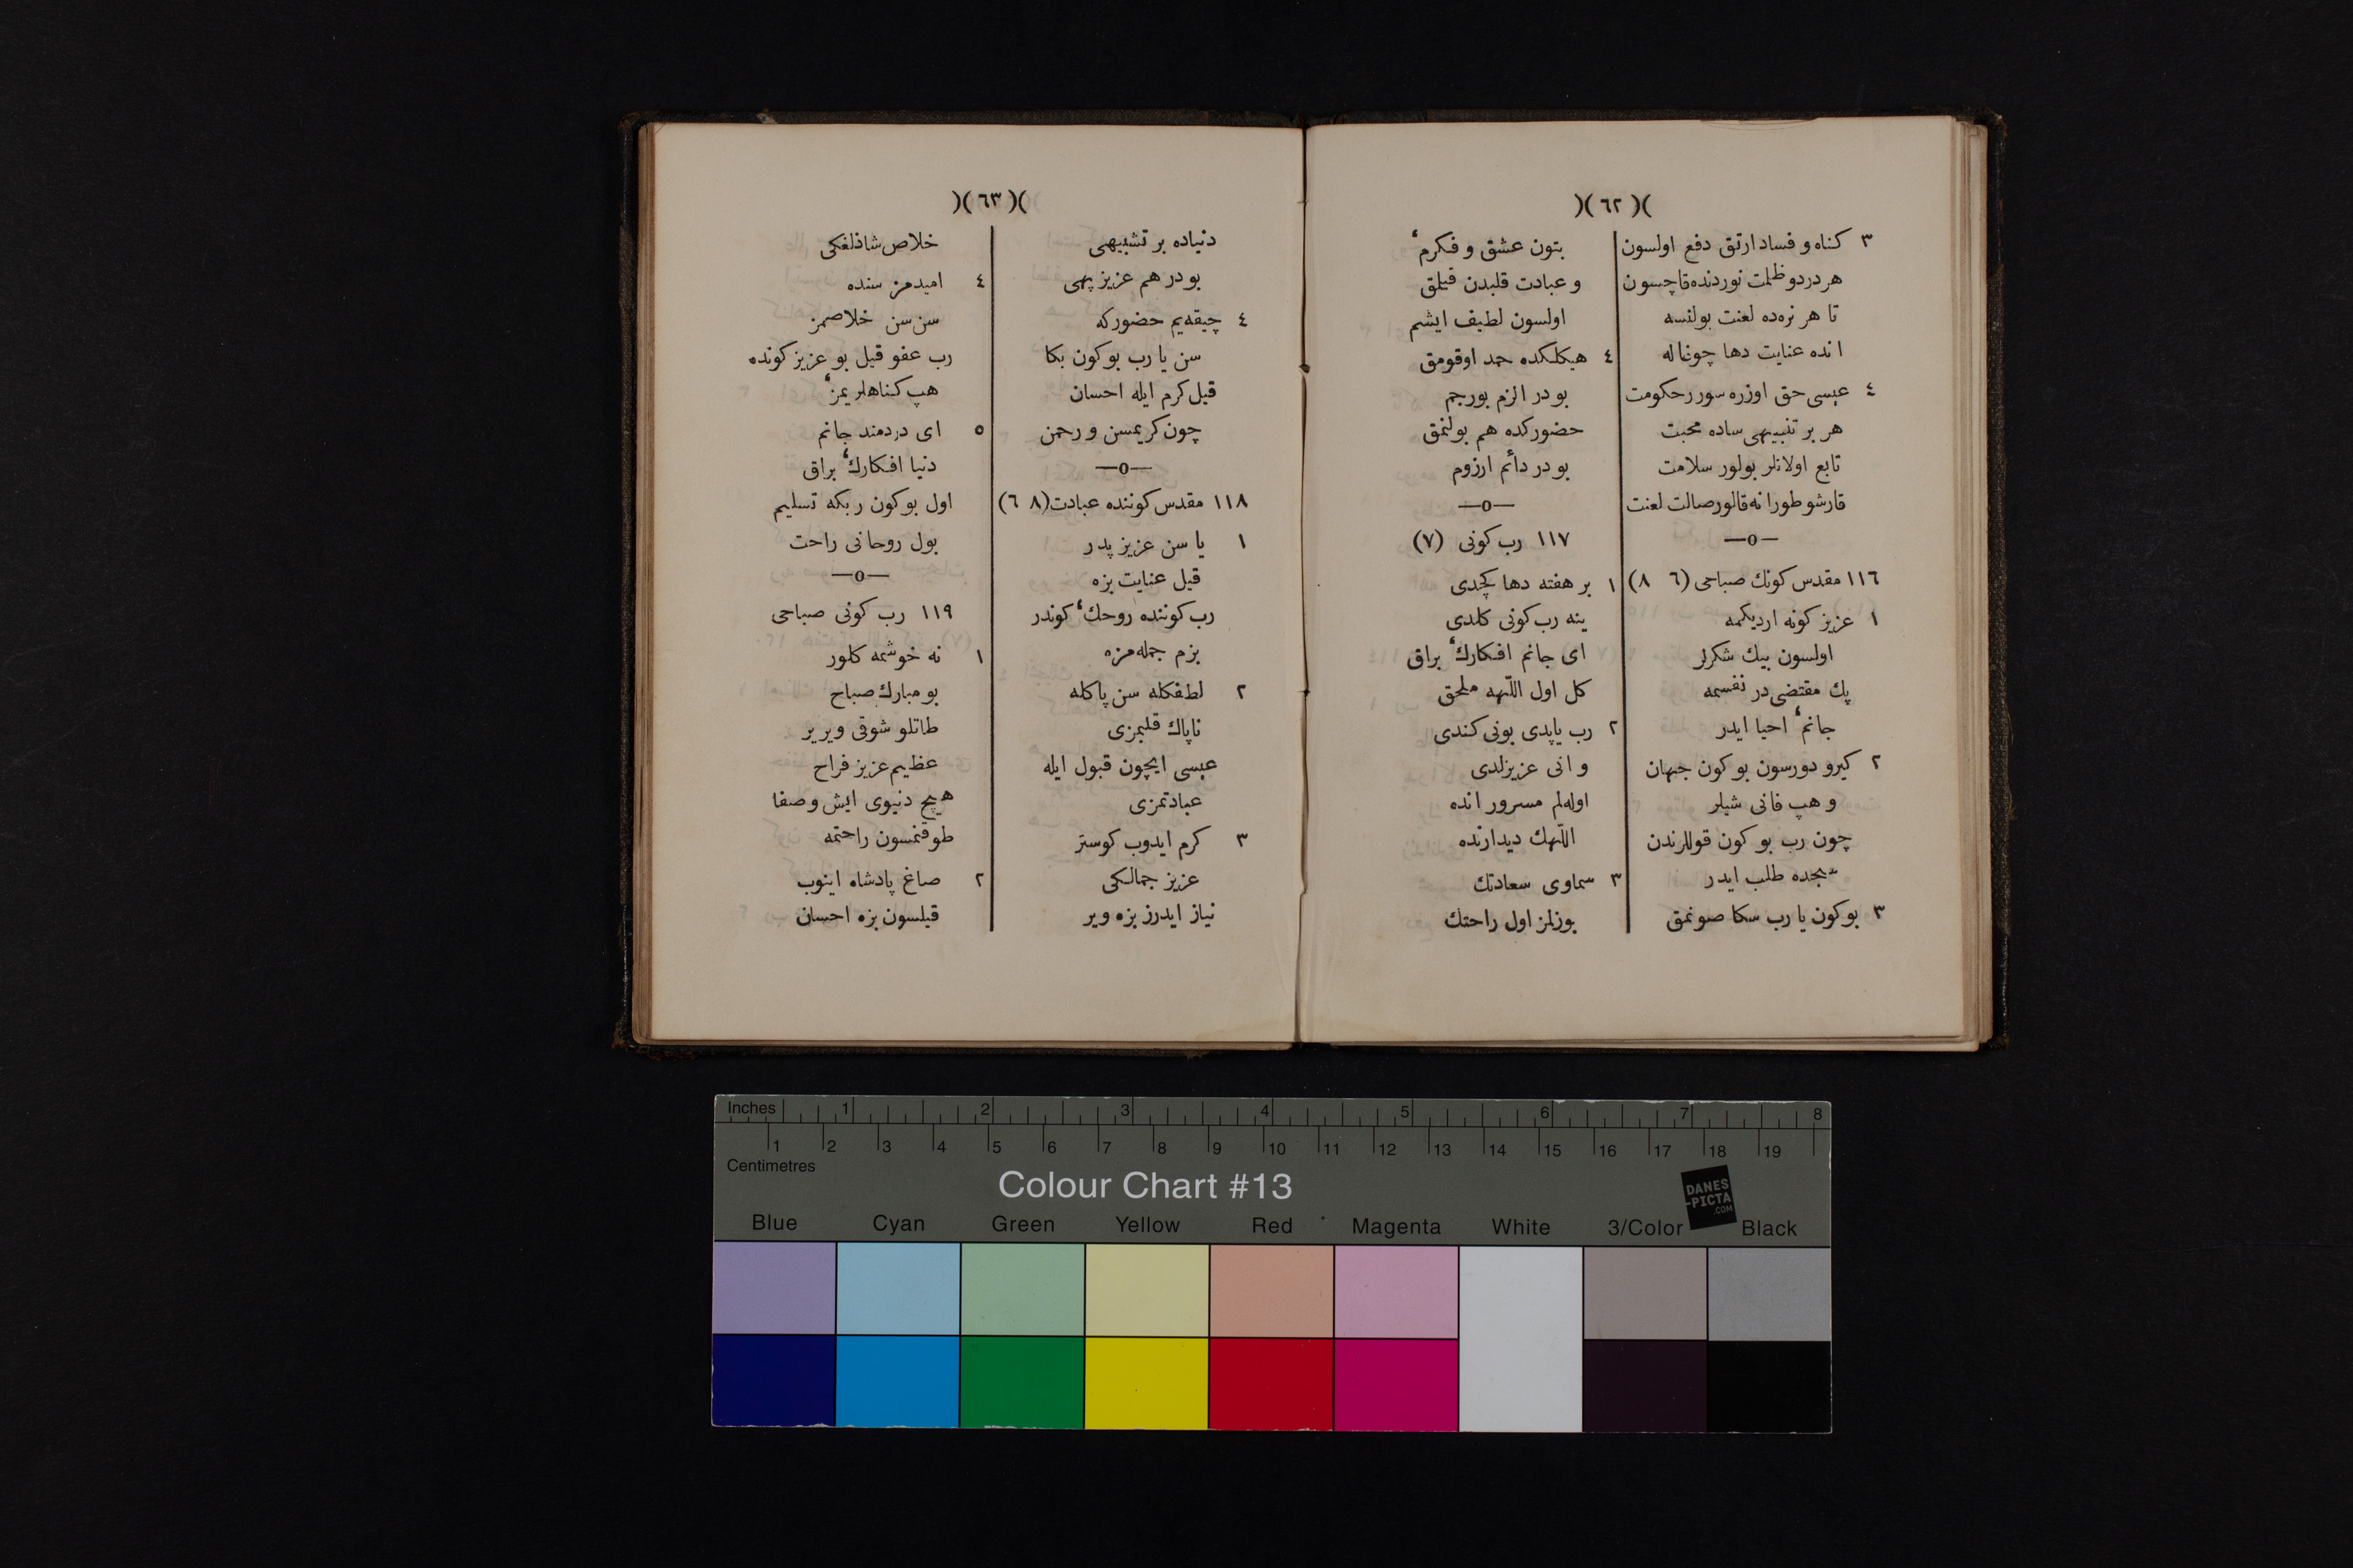 )( ٦٢ )(
٣ كناه و فساد ارتق دفع اولسون
هر درد و ظلمت نوردنده قاچسون
تا هر نره‌ده لعنت بولنسه
انده عنايت دها چوغاله
٤ عيسى حق اوزره سورر حكومت
هر بر تنبيهى ساده محبت
تابع اولانلر بولور سلامت
قارشو طورانه قالور صالت لعنت
—o—
١١٦ مقدس كونك صباحى (٦ ٨)
١ عزيز كونه ارديكمه
اولسون بيك شكرلر
پك مقتضى در نفسمه
جانمء احيا ايدر
٢ كيرو دورسون بو كون جهان
و هپ فانى شيلر
چون رب بو كون قوللرندن
سجده طلب ايدر
٣ بو كون يا رب سكا صونمق
بتون عشق و فكرمء
و عبادت قلبدن قيلق
اولسون لطيف ايشم
٤ هيكلكده حمد اوقومق
بو در الزم بورجم
حضوركده هم بولنمق
بو در دائم ارزوم
—o—
١١٧ رب كونى (٧)
١ بر هفته دها كچدى
ينه رب كونى كلدى
اى جانم افكاركء براق
كل اول اللّٰهه ملحق
٢ رب ياپدى بونى كندى
و انى عزيزلدى
اوله‌لم مسرور انده
اللّٰهك ديدارنده
٣ سماوى سعادتك
بوزلمز اول راحتك
)( ٦٣ )(
دنياده بر تشبيهى
بو در هم عزيز پهى
٤ چيقه‌يم حضوركه
سن يا رب بو كون بكا
قيل كرم ايله احسان
چون كريمسن و رحمن
—o—
١١٨ مقدس كوننده عبادت (٨ ٦)
١ يا سن عزيز پدر
قيل عنايت بزه
رب كوننده روحكء كوندر
بزم جمله‌مزه
٢ لطفكله سن پاكله
ناپاك قلبمزى
عيسى ايچون قبول ايله
عبادتمزى
٣ كرم ايدوب كوستر
عزيز جمالكى
نياز ايدرز بزه وير
خلاص شاذلغكى
٤ اميدمز سنده
سن سن خلاصمز
رب عفو قيل بو عزيز كونده
هپ كناهلريمزء
٥ اى دردمند جانم
دنيا افكاركء براق
اول بو كون ربكه تسليم
بول روحانى راحت
—o—
١١٩ رب كونى صباحى
١ نه خوشمه كلور
بو مبارك صباح
طاتلو شوقى ويرير
عظيم عزيز فراح
هيچ دنيوى ايش و صفا
طوقنمسون راحتمه
٢ صاغ پادشاه اينوب
قيلسون بزه احسان
Inches 1 2 3 4 5 6 7 8
1 2 3 4 5 6 7 8 9 10 11 12 13 14 15 16 17 18 19
Centimetres
Colour Chart #13
DANES
-PICTA
.COM
Blue Cyan Green Yellow Red Magenta White 3/Color Black